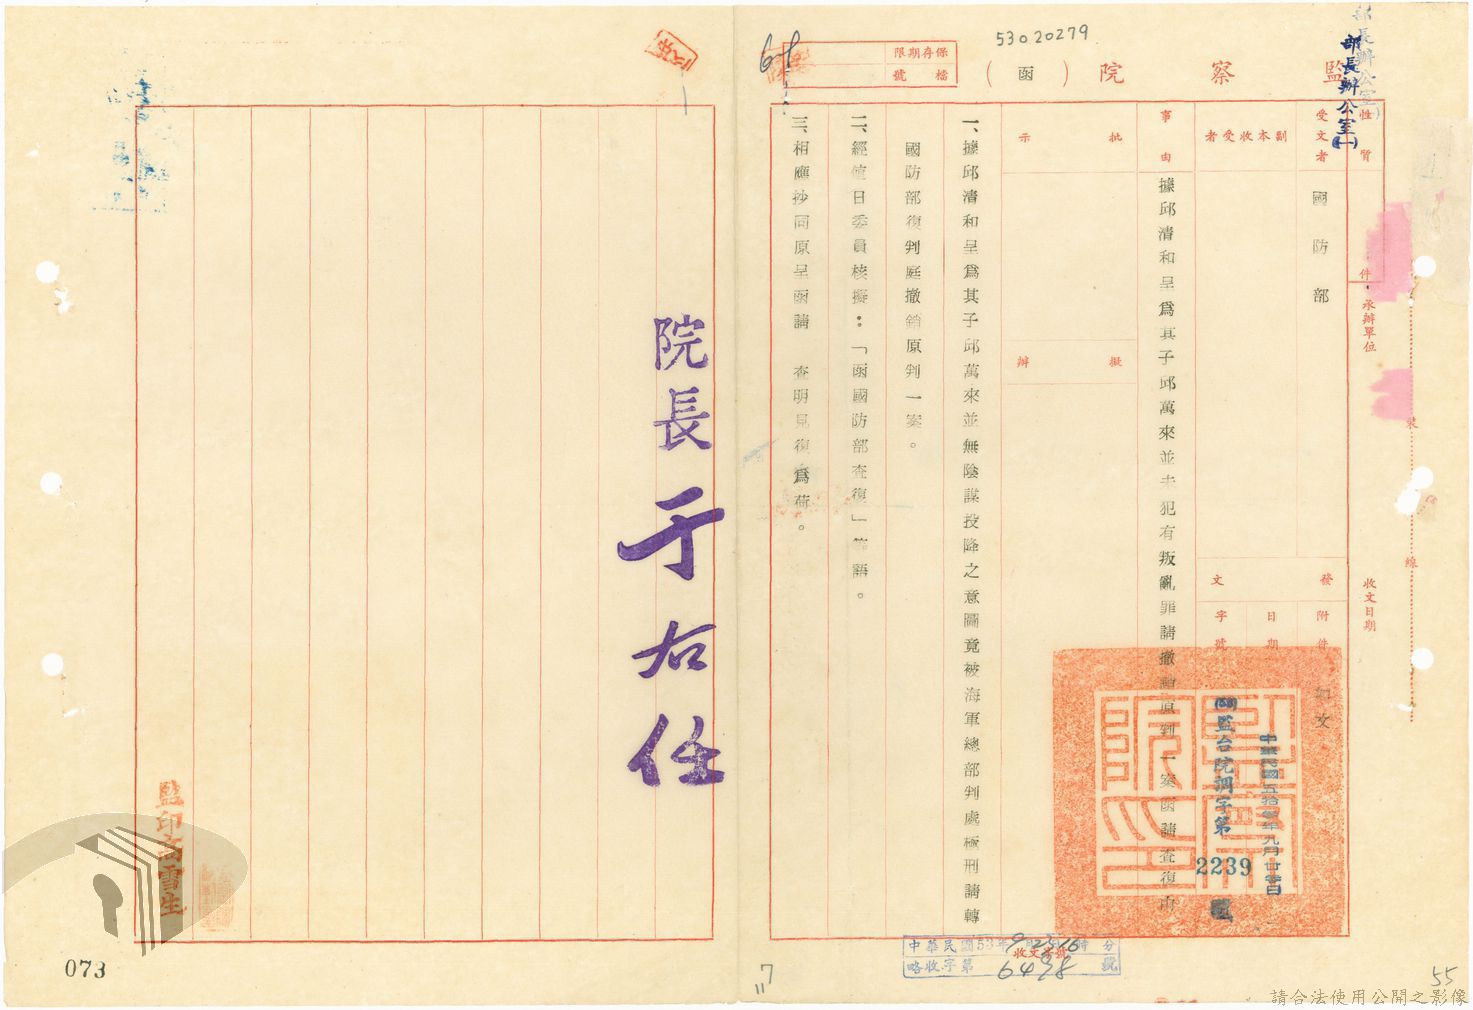 53020279
監察院（函）
保存期限
檔號
部長辦公室(一)
部長辦公室(一)
性質
件
承辦單位
收文日期
裝
線
受文者
國防部
副本收受者
發文
附件
如文
日期
字號
(53)監台院調字第
2239
號
批示
擬辦
事由
據邱清和呈為其子邱萬來並未犯有叛亂罪請撤銷原判一案函請查復由
一、據邱清和呈為其子邱萬來並無陰謀投降之意圖竟被海軍總部判處極刑請轉
國防部復判庭撤銷原判一案。
二、經值日委員核擬：「函國防部查復」等語。
三、相應抄同原呈函請　查明見復為荷。
院長于右任
監印高雪生
中華民國53年9月
收文字號
略收字第6498號
073
55
請合法使用公開之影像